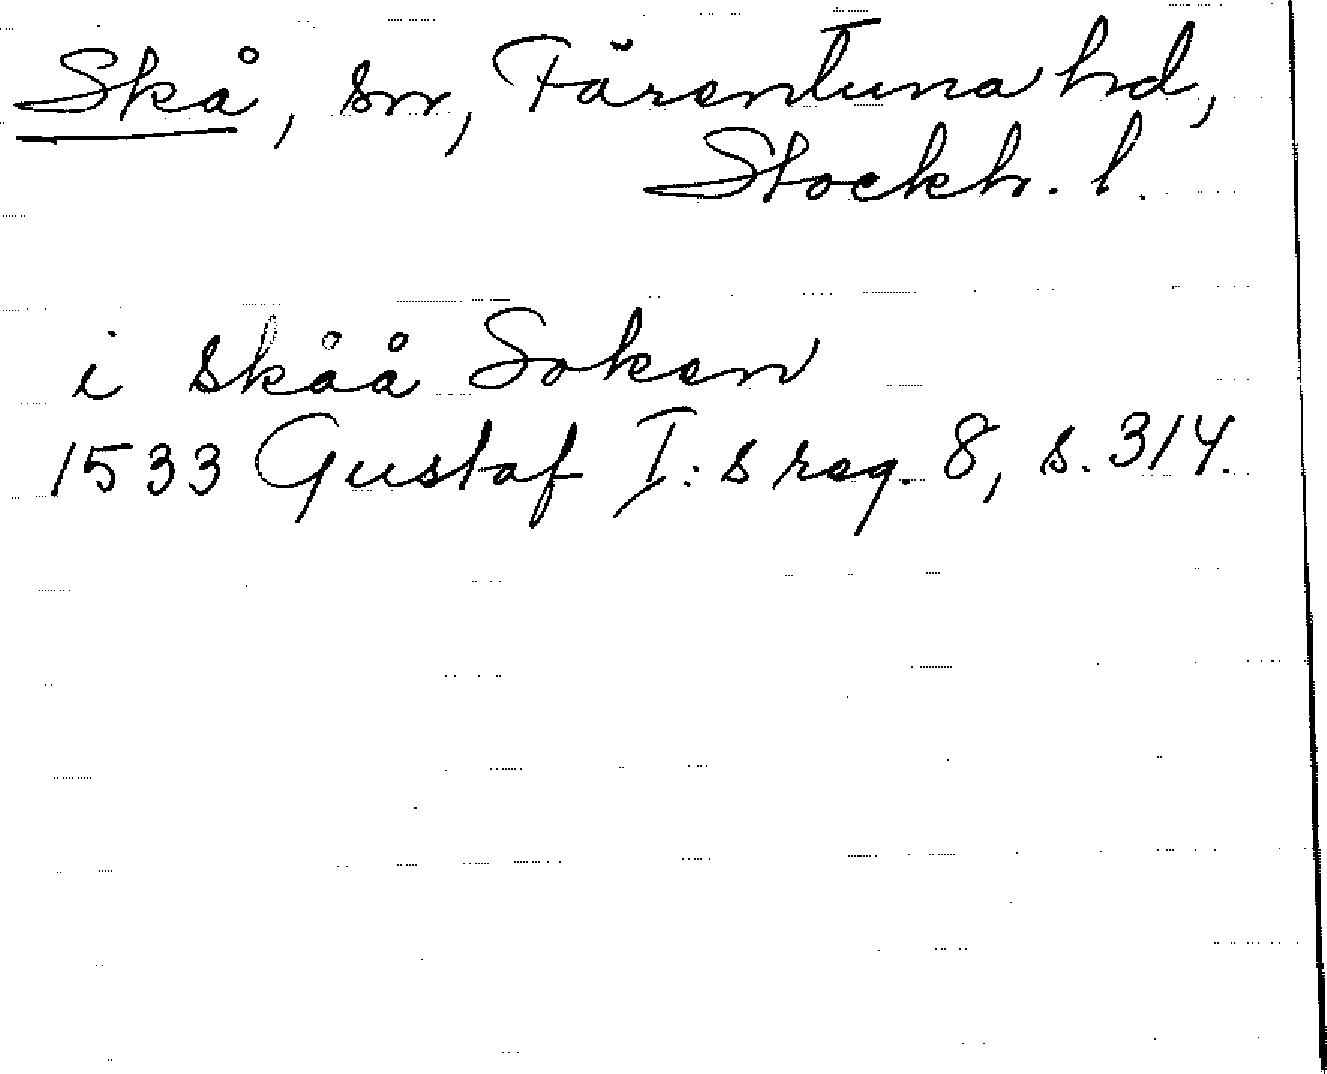 Skå, sn, Färentuna hd,
Stockh. l.
i skåå Soken
1533 Gustaf I:s reg. 8, s. 314.